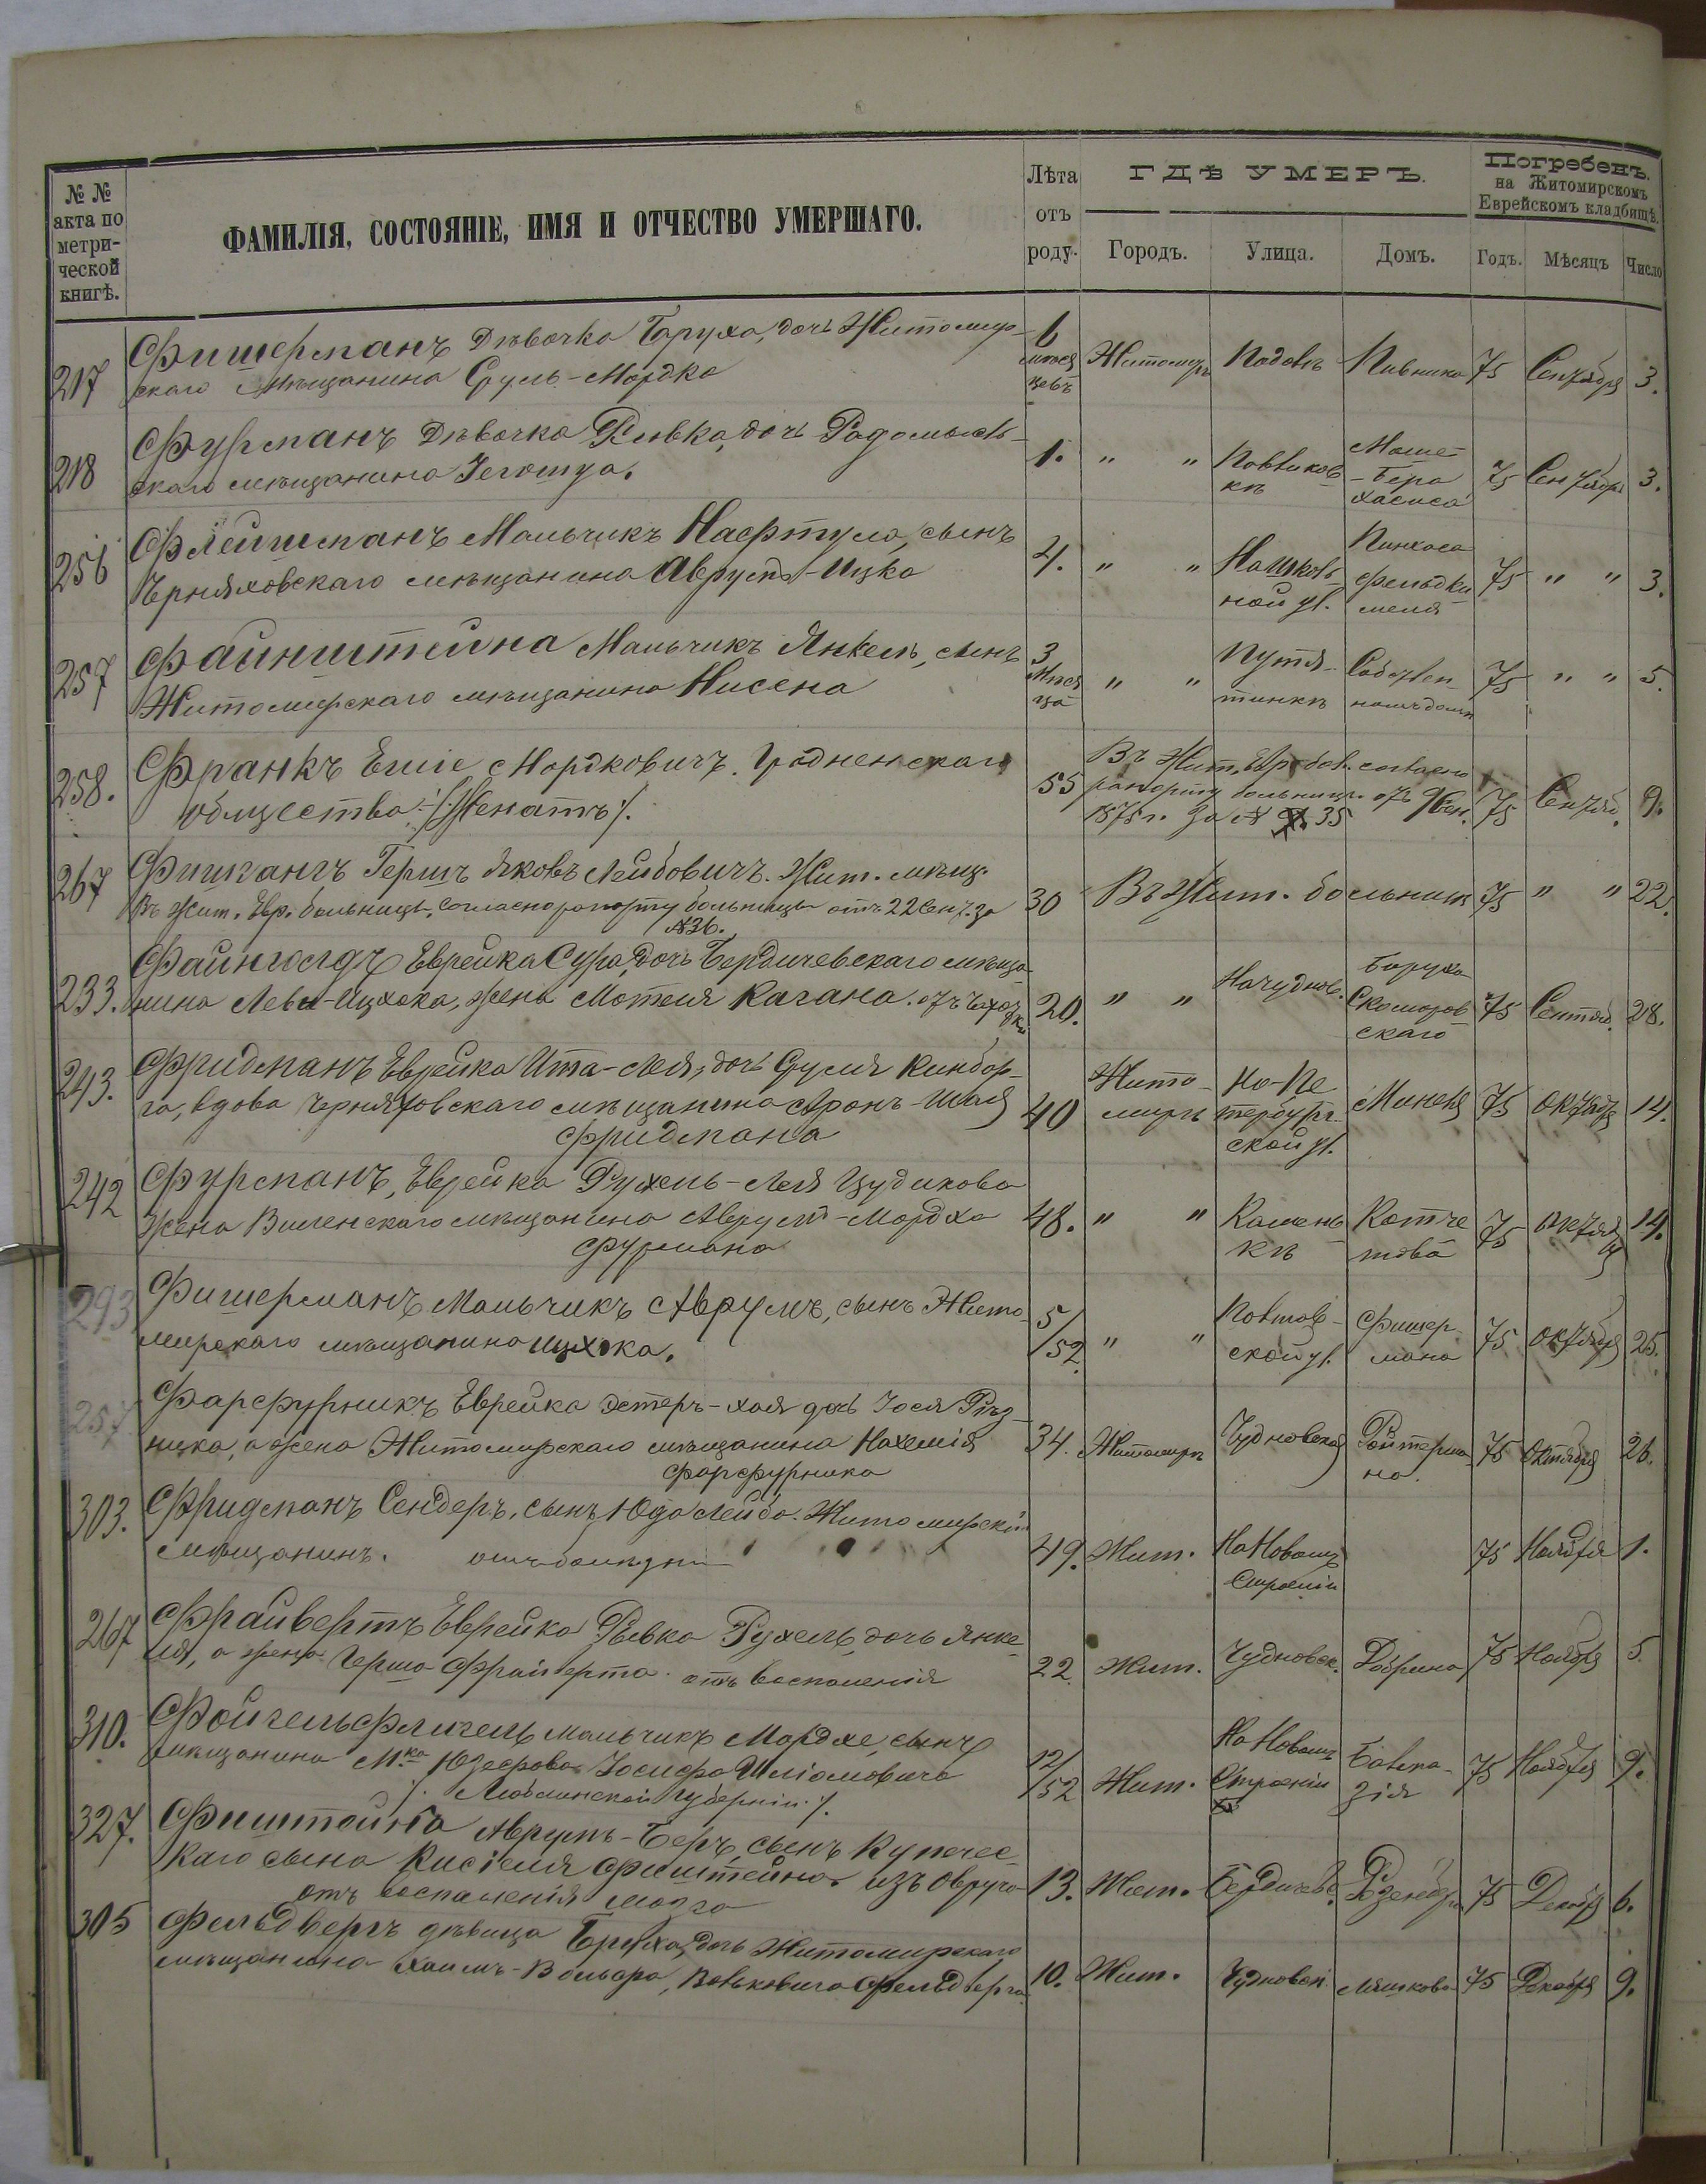 № №
акта по
метри-
ческой
книгѣ.
ФАМИЛІЯ, СОСТОЯНІЕ, ИМЯ И ОТЧЕСТВО УМЕРШАГО.
Лѣта
отъ
роду.
ГДѢ УМЕРЪ.
Городъ.
Улица.
Домъ.
Погребенъ.
на Житомирскомъ
Еврейскомъ кладбищѣ.
Годъ.
Мѣсяцъ
Число
217
Фишерманъ Дѣвочка Баруха, дочь Житомир-
скаго мѣщанина Сруль-Мордка
6
мѣся
цевъ
Житомиръ
Подолѣ
Пивника
75
Сентября
3.
218
Фурманъ Дѣвочка Ривка, дочь Радомысль-
скаго мѣщанина Іегошуа.
1.
" "
кѣ
Моше-
-Бера
75
Сентября
3.
256
Флейшманъ Мальчикъ Нафтула, сынъ
Черняховскаго мѣщанина Аврумъ-Ицка
4.
" "
ной ул.
Пинхаса
75
" "
3.
257
Файнштейна Мальчикъ Янкель, сынъ
Житомирскаго мѣщанина Нисена
3
мѣся
ца
" "
Путя-
тинкѣ
Собствен-
номъ домѣ
75
" "
5.
258.
Франкъ Еміе Мордковичъ. Гродненскаго
общества /:Женатъ:/.
55
Въ Жит. Евр. бол. согласно
рапорту больницы отъ 9 Сен.
1875 г. за № 35
75
Сентяб.
9.
267
Фишманъ Гершъ Яковъ Лейбовичъ. Жит. мѣщ.
Въ Жит. Евр. больницѣ, согласно рапорту больницы отъ 22 Сент. за
№36.
30
Въ Жит. больницѣ
75
" "
22.
233.
Еврейка Сура, дочь Бердичевскаго мѣща-
нина Лева-Ицхока, жена Мотеля Кагана. отъ Чахотки
20.
" "
Начуднов.
Баруха
Скоморов
скаго
75
Сентяб.
28.
243.
Фридманъ Еврейка Ита-Лея, дочь Сруля Кинбор-
га, вдова Черняховскаго мѣщанина Аронъ-Шая
Фридмана
40
Жито-
миръ
На-Пе
тербург-
ской ул.
75
Октябр
14.
242
Фурманъ, Еврейка Рухель-Лея Цудикова
жена Виленскаго мѣщанина Аврумъ-Мордха
Фурмана
48.
" "
Камень
кѣ
Котче
това
75
Октября
14.
293
Фишерманъ Мальчикъ Аврумъ, сынъ Жито-
мирскаго мѣщанина Ицхока.
5/52
" "
ской ул.
Фишер-
мана
75
Октября
25.
257
Фарфурникъ Еврейка Эстеръ-Хая дочь Іося Рѣз-
ника, а жена Житомирскаго мѣщанина Нахемія
Фарфурника
34.
Житомиръ
Чудновская
Ройтерма-
на.
75
Октября
26.
303.
Фридманъ Сендеръ, сынъ Юда Лейба. Житомирскій
мѣщанинъ.
49.
Жит.
На Новомъ
Строеніи
75
Ноября
1.
267
Фрайвертъ Еврейка Ривка Рухель, дочь Янке-
ля, а жена Герша Фрайверта. отъ воспаленія
22.
Жит.
Чудновск.
Добрина
75
Ноября
5.
310.
Фойгельфлигель мальчикъ Мордхе, сынъ
мѣщанина М.ка Юзефова Іосифа Шліомовича
/. Люблинской губерніи./.
12/52
Жит.
На Новомъ
Строеніи
75
Ноября
9.
327.
Фиштейна Аврумъ-Беръ, сынъ Купечес-
каго сына Кисіеля Фиштейна. изъ Овруча
отъ воспаленія мозга
13.
Жит.
Бердичевс.
75
Декабр
6.
305
Фельдбергъ дѣвица Бруха, дочь Житомирскаго
мѣщанина Хаимъ-Вольфа, Вольковича Фельдберга
10.
Жит.
Чудновск.
Мяшкова
75
Декабря
9.